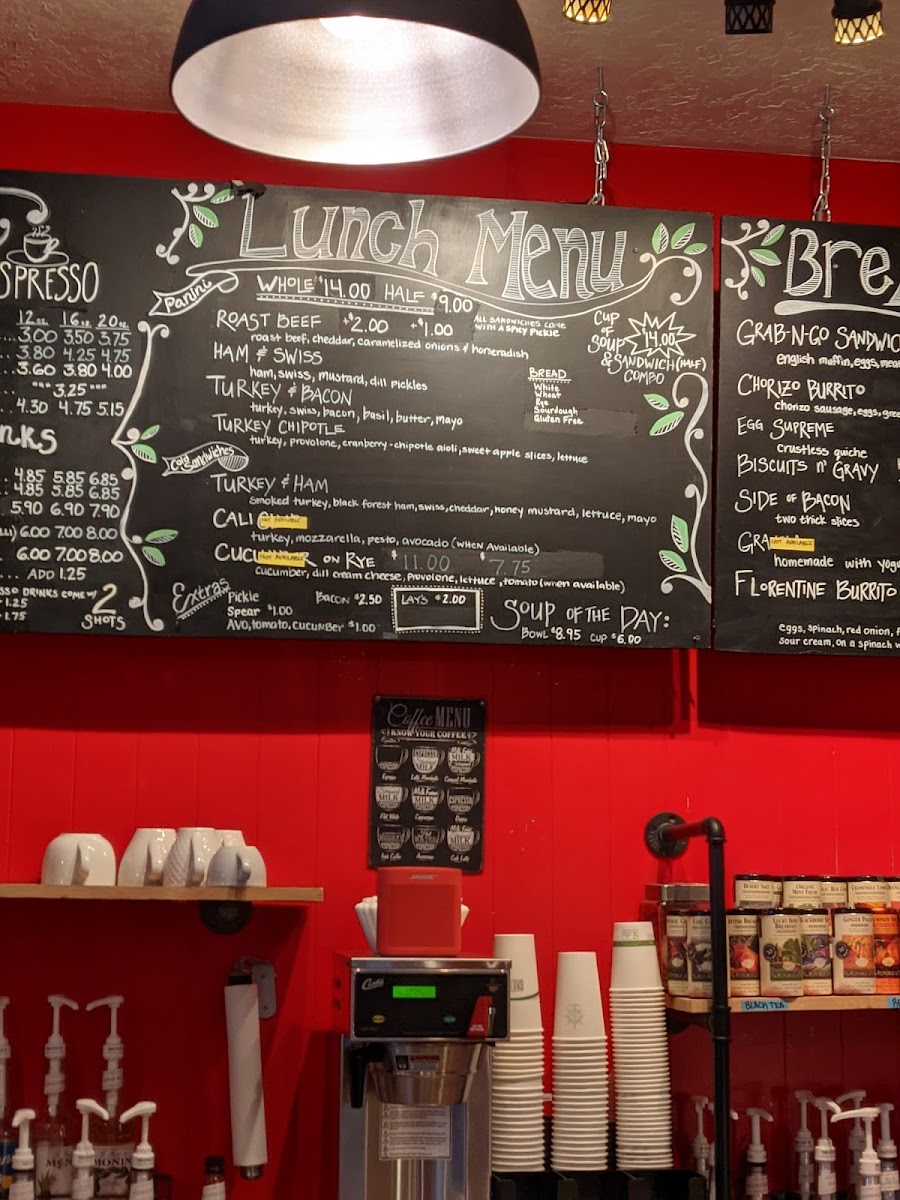 SPRESSO
12oz. 16oz. 20oz.
3.00 3.50 3.75
3.80 4.25 4.75
3.60 3.80 4.00
*** 3.25 ***
4.30 4.75 5.15
nks
4.85 5.85 6.85
4.85 5.85 6.85
5.90 6.90 7.90
6.00 7.00 8.00
6.00 7.00 8.00
ADD 1.25
SSO DRINKS COME W/ 2 SHOTS
1.25
1.75
Lunch Menu
Panini
WHOLE $14.00 HALF $9.00
ROAST BEEF +$2.00 +$1.00
roast beef, cheddar, caramelized onions & horseradish
ALL SANDWICHES COME
WITH A SPICY PICKLE
HAM & SWISS
ham, swiss, mustard, dill pickles
TURKEY & BACON
turkey, swiss, bacon, basil, butter, mayo
TURKEY CHIPOTLE
turkey, provolone, cranberry-chipotle aioli, sweet apple slices, lettuce
BREAD
White
Wheat
Rye
Sourdough
Gluten Free
CUP
OF
SOUP
14.00
& SANDWICH (HALF)
COMBO
Cold Sandwiches
TURKEY & HAM
smoked turkey, black forest ham, swiss, cheddar, honey mustard, lettuce, mayo
CALI
NOT AVAILABLE
turkey, mozzarella, pesto, avocado (WHEN Available)
CUCU R ON RYE $11.00 $7.75
NOT AVAILABLE
cucumber, dill cream cheese, provolone, lettuce, tomato (when available)
Extras
Pickle
Spear $1.00
AVO, tomato, cucumber $1.00
BACON $2.50
LAY'S $2.00
SOUP OF THE DAY:
BOWL $8.95 CUP $6.00
Bre
GRAB-N-GO SANDWIC
english muffin, eggs, mea
CHORIZO BURRITO
chorizo sausage, eggs, gree
EGG SUPREME
crustless quiche
BISCUITS N' GRAVY
SIDE OF BACON
two thick slices
GRA
NOT AVAILABLE
homemade with yogu
FLORENTINE BURRITO
eggs, spinach, red onion, f
sour cream, on a spinach w
Coffee MENU
KNOW YOUR COFFEE
ESPRESSO
MILK
BOSE
Curtis
DESERT SAGE
ORGANIC
MINT FIELDS
LUCKY IRISH
BREAKFAST
BLACKBERRY
GINGER
BLACK TEA
MONIN